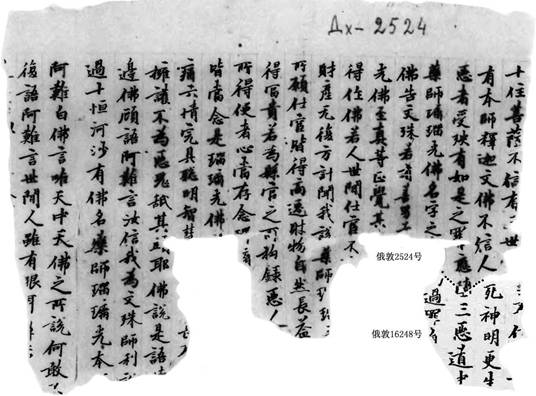 Дх-2524
十住菩薩不信有三世
有本師釋迦文佛不信人死神明更生
惡者受殃有如是之罪應墮三惡道中
藥師瑠璃光佛名字之
過罪
佛告文殊若諸善男
光佛至真等正覺其
得作佛若人世間仕官不
財産无復方計聞我說藥師
所願仕官皆得高遷財物自然長益
得富貴若為縣官之所拘錄惡人
所得便者心當存念
皆當念是瑠璃光佛
痛六情完具聰明智慧
擁護不為惡鬼舐其頭耶佛說是語
邊佛顧語阿難言汝信我為文殊師利
過十恒河沙有佛名藥師瑠璃光本
阿難白佛言唯天中天佛之所說何敢
復語阿難言世間人雖有眼耳
俄敦2524号
俄敦16248号